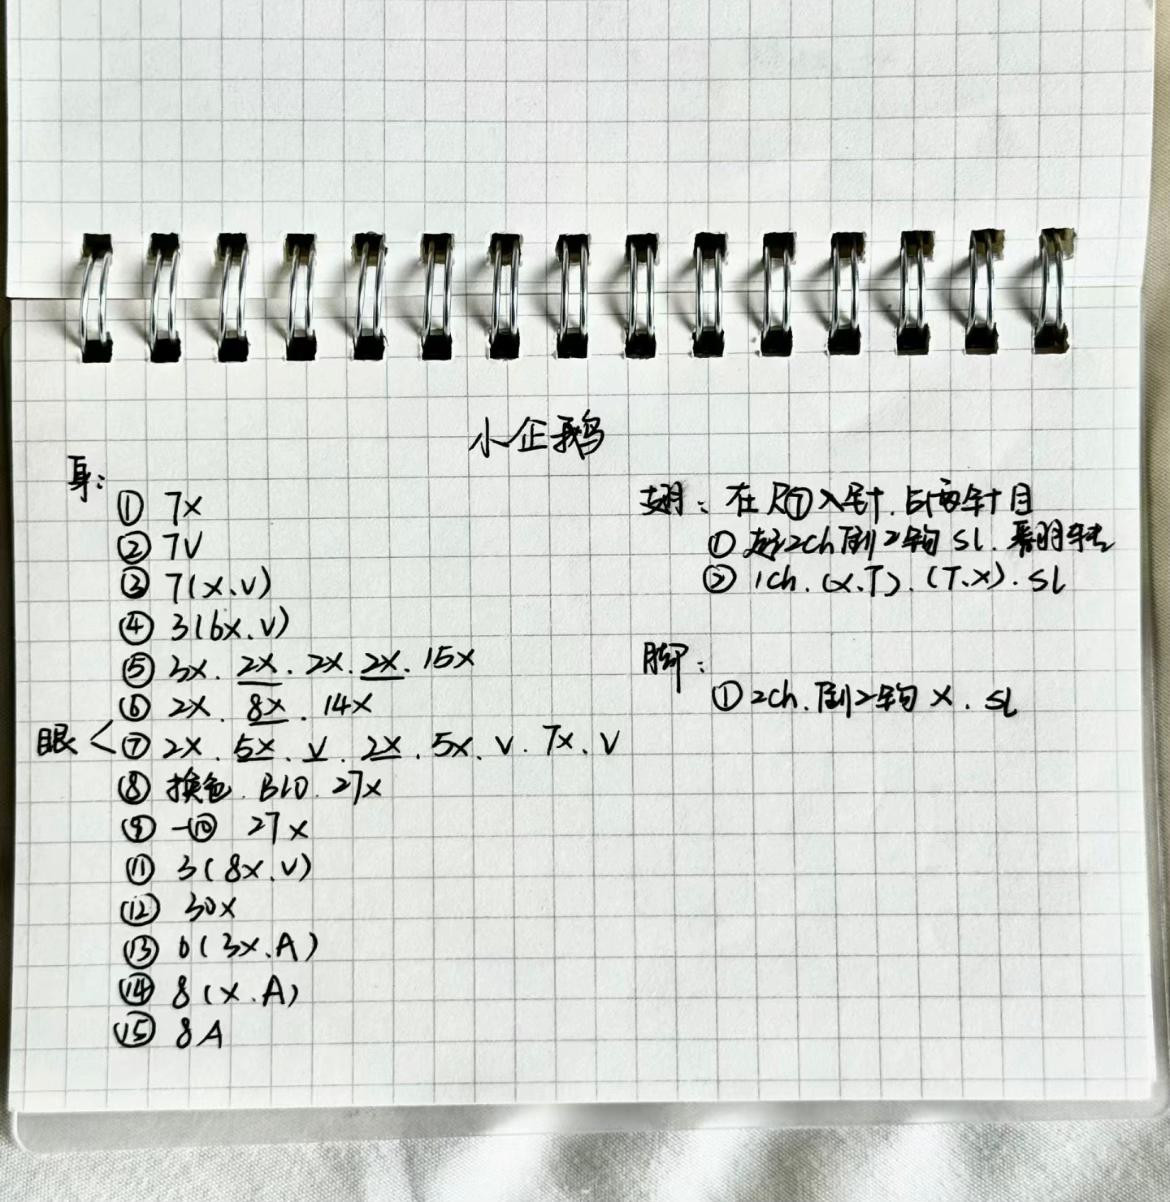 小企鹅
身:
① 7x
② 7V
③ 7(x.v)
④ 3(6x.v)
⑤ 3x. 2x. 2x. 2x. 15x
⑥ 2x. 8x. 14x
眼<⑦ 2x. 5x. v. 2x. 5x. v. 7x. v
⑧ 换色. BLO. 27x
⑨-⑩ 27x
⑪ 3(8x.v)
⑫ 30x
⑬ 6(3x.A)
⑭ 8(x.A)
⑮ 8A
翅: 在R⑦入针. 占两针目
① 起2ch 倒2钩 SL. 翻转
② 1ch. (x.T). (T.x). SL
脚:
① 2ch. 倒2钩 x. SL